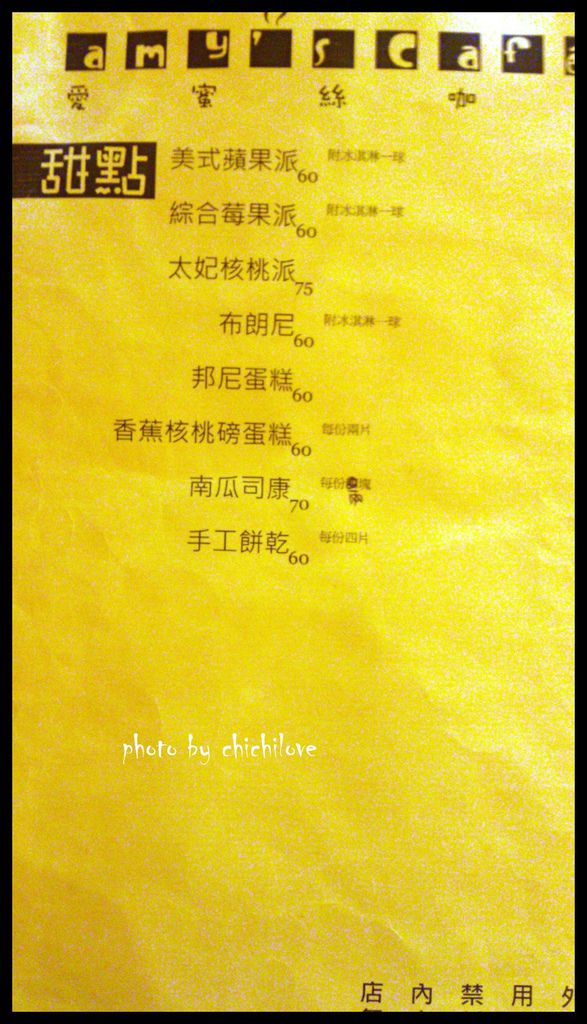 amy's Cafe
愛蜜絲咖
甜點
美式蘋果派60 附冰淇淋一球
綜合莓果派60 附冰淇淋一球
太妃核桃派75
布朗尼60 附冰淇淋一球
邦尼蛋糕60
香蕉核桃磅蛋糕60 每份兩片
南瓜司康70 每份兩塊
手工餅乾60 每份四片
photo by chichilove
店內禁用外